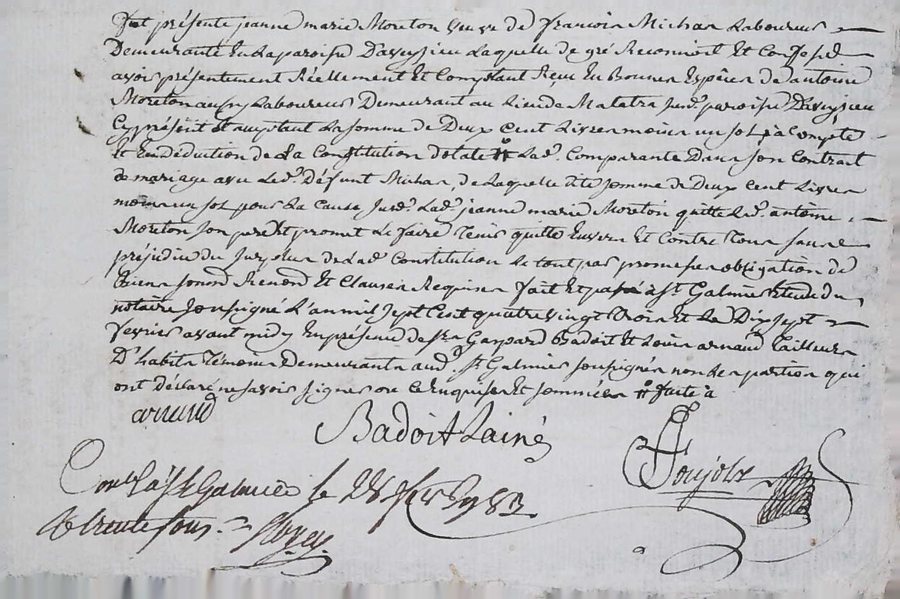 fut présente jeanne marie Moreton veuve de francois Michas Laboureur
Demeurante En la paroisse Daveysieu Laquelle de gré Reconnoit Et Confesse
avoir présentement Réellement Et Comptant Reçu En Bonnes Espéces de antoine
Moreton aussy Laboureur Demeurant au Lieu de Malatra susd. paroisse Daveysieu
Cy présent Et acceptant La somme de Deux cent Livres moins un sol, à Compte
Et En déduction de La Constitution dotale # Lad. Comparante Dans son Contrat
de mariage avec Led. Défunt Michas, de Laquelle dite somme de Deux cent Livres
moins un sol pour La Cause susd. Lad. jeanne marie Moreton quitte Led. antoine
Moreton son pere Et promet Le faire Tenir quitte Envers Et Contre Tous sans
préjudice du surplus de Lad. Constitution Le tout par promesse obligation de
Biens soumd. Renond. Et Clauses Requises fait Et passé à St. Galmier Etude du
notaire soussigné L'an mil sept Cent quatre vingt trois Et Le Dix sept
fevrier avant midy En présence de Gaspard Badoit Et Louis arnaud Tailleurs
D'habits Témoins Demeurants aud. St. Galmier soussignés non Les parties qui
ont déclaré ne savoir signer de ce Enquises Et sommées # faite à
arnaud
Badoit Lainé
Soujols
Conlé à St Galmier le 28 fer 1783
trente sous